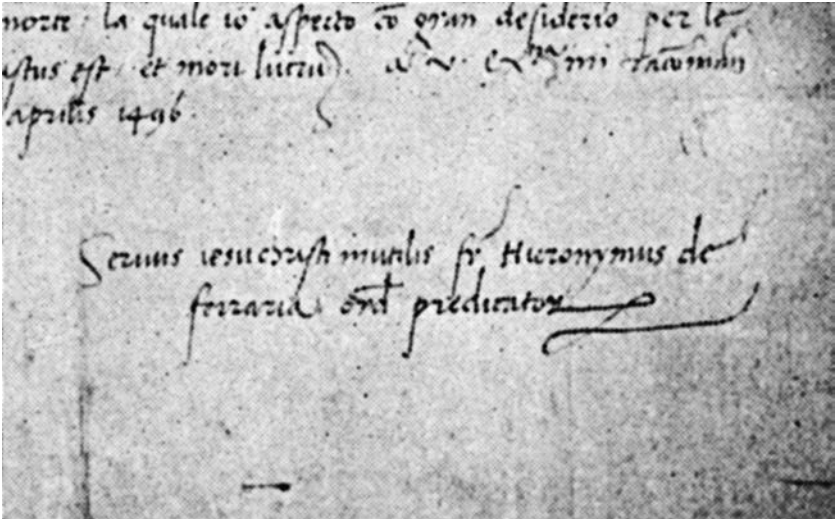 morte: la quale io aspecto cō gran desiderio per le
istus est et mori lucrū). a v. Ex mi
aprilis 1496
Servus iesu christi inutilis fr Hieronymus de
ferraria ord predicator